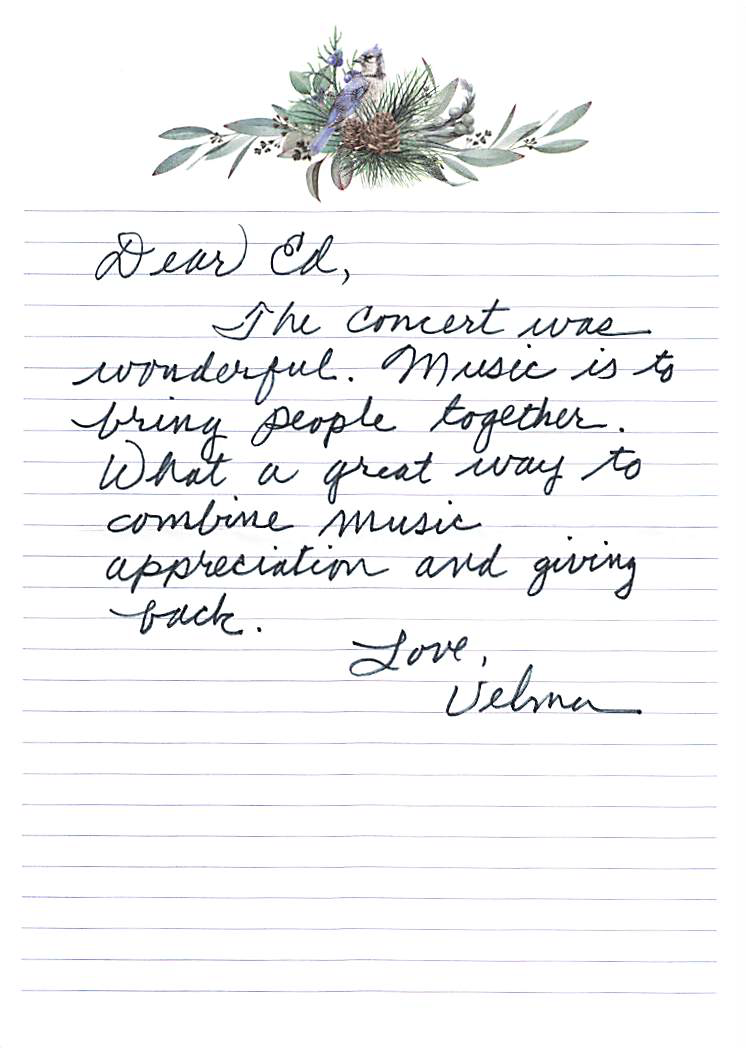 Dear Ed,
The concert was
wonderful. Music is to
bring people together.
What a great way to
combine music
appreciation and giving
back.
Love,
Velma